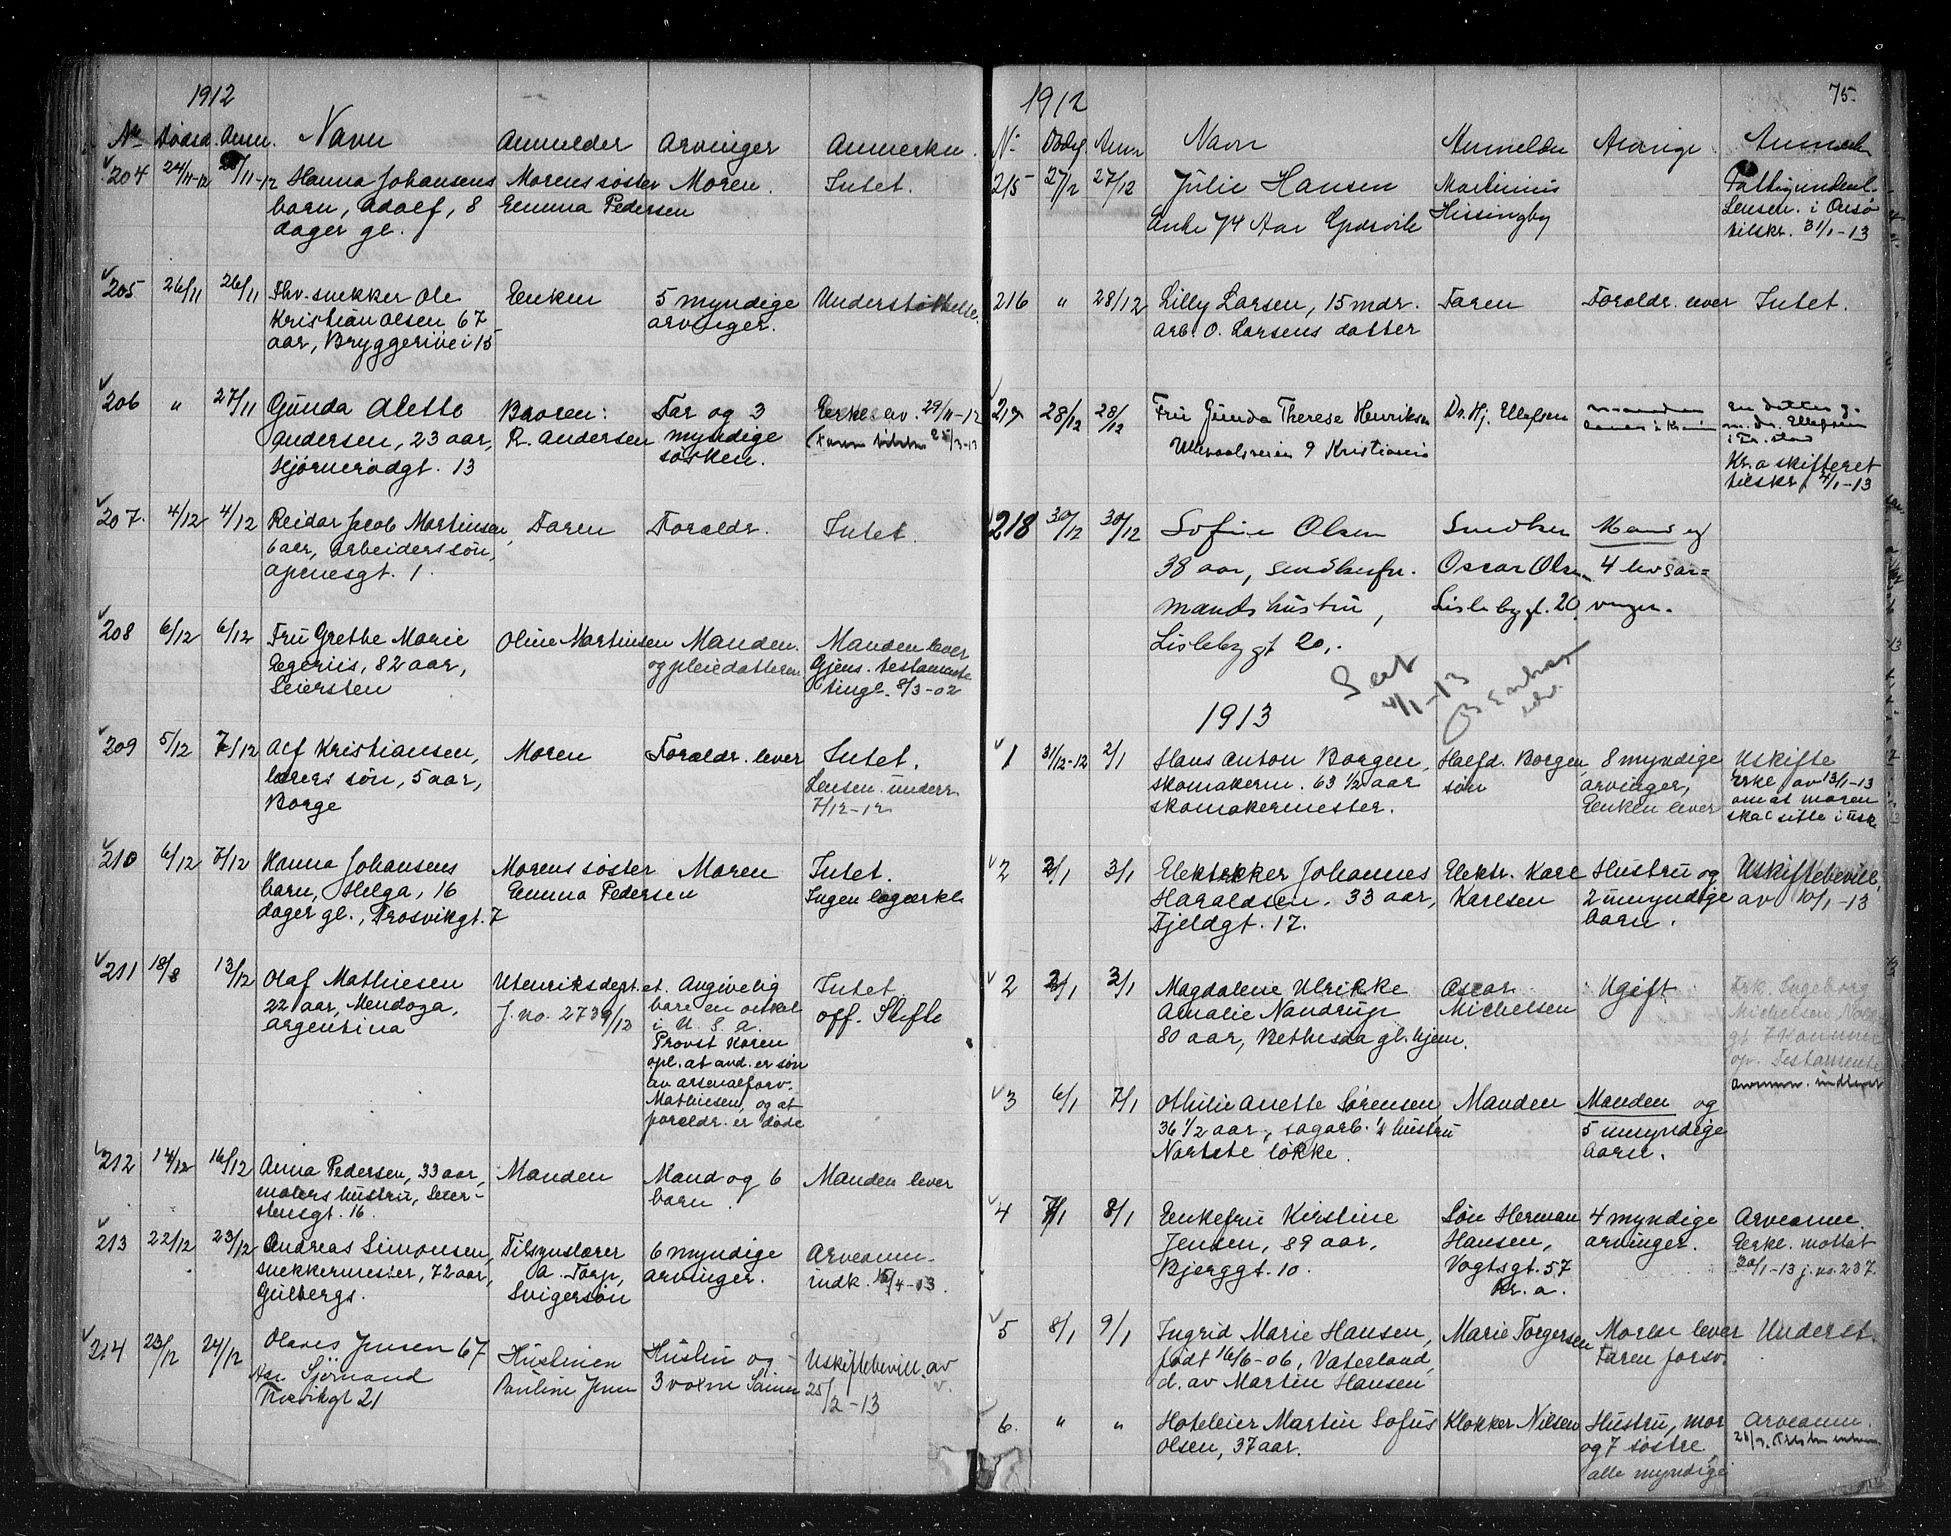 1912
No Dødsd. Anm. Navn Anmelder Arvinger Anmerkn.
204 24/11-12 /11-12 Hanna Johansens Morens søster Moren. Intet.
barn, Adolf, 8 Emma Pedersen
dager gl.
205 26/11 26/11 Fhv. snekker Ole Enken 5 myndige Understøttelse.
Kristian Olsen 67 arvinger.
aar, Bryggerivei 15
206 " 27/11 Gunda Alette Broren: Far og 3 Erkl. av. 29/11-12
Andersen, 23 aar, R. Andersen myndige
Hjørnerødgt. 13 søsken.
207. 4/12 4/12 Reidar Jacob Martinsen, Faren Foreldr. Intet.
6 aar, arbeiders søn,
Apenesgt. 1.
208 6/12 6/12 Fru Grethe Marie Oline Martinsen Manden. Manden lever
Segeriis, 82 aar, og pleiedatteren Gjens. testamente
Seiersten tingl. 8/3-02
209 5/12 7/12 Alf Kristiansen, Moren Foreldr. lever Intet.
lærers søn, 5 aar, Lensm. underr.
Borge 7/12-12
210 6/12 7/12 Hanna Johansens Morens søster Moren Intet.
barn, Helga, 16 Emma Pedersen Ingen lægeerkl.
dager gl., Trosvikgt. 7
211 18/8 13/12 Olaf Mathiesen Utenriksdept. et. Angivelig Intet.
22 aar, Mendoza, J. no. 2739/12 bare en onkel off. Skifte
Argentina i U. S. A.
Provst Koren
opl. at avd. er søn
av arsenalforv.
Mathiesen, og at
foreldr. er døde
212 14/12 16/12 Anna Pedersen, 33 aar, Manden Mand og 6 Manden lever
malers hustru, Seier- barn.
stensgt. 16.
213 22/12 23/12 Andreas Simonsen, Tilsynslærer 6 myndige Arveanm.
snekkermester, 72 aar, A. Torp, arvinger. indk. 15/4-13.
Gulbergs. Svigersøn
214 23/12 24/12 Olaves Jensen 67 Hustruen Hustru og Uskiftebevill. av
Aar Sjømand Pauline Jensen 3 voksne 25/2-13
Trosvikgt 21
1912 75.
No Dødsd. Anm Navn Anmelder Arvinge Anmerk
215 27/12 27/12 Julie Hansen Martinius Fattigunderst.
Enke 74 Aar Gudsvik Kissingby Lensm. i Onsø
tilskr. 31/1-13
216 " 28/12 Lilly Larsen, 15 mdr. Faren Foreldr. lever Intet.
arb. O. Larsens datter
217 28/12 28/12 Fru Gunda Therese Henriksen Dr. Hj. Ellefsen En datter g.
Ullevaalsveien 9 Kristiania m. dr. Ellefsen
i Fr.stad
Kr.a skifteret
tilskr. 2/1-13
218 30/12 30/12 Sofie Olsen Smedken Mand og
38 aar, smedkenfor- Oscar Olsen 4 livsar=
mands hustru, Lislebygt. 20. vinger.
Lislebygt 20.
Seet
4/1-13
1913
1 31/12-12 2/1 Hans Anton Borgen, Halfd. Borgen, 8 myndige Uskifte
skomakerm. 63 1/2 aar søn arvinger, Erkl. av 13/1-13
skomakermester. Enken lever om at moren
skal sitte i usk.
2 2/1 3/1 Elektrikker Johannes Elektr. Karl Hustru og Uskiftebevill.
Haraldsen. 33 aar, Karlsen 2 umyndige av 10/1-13
Fjeldgt. 17. barn.
2 2/1 3/1 Magdalene Ulrikke Oscar Ugift Frk. Ingeborg
Amalie Nandrup Michelsen Michelsen,
80 aar, Bethesda gl. hjem. gt 7
op. Testamente
3 6/1 7/1 Othilie Anette Sørensen, Manden Manden og
36 1/2 aar, sagarb.'s hustru 5 umyndige
Nortete løkke. barn.
4 7/1 8/1 Enkefru Kirstine Søn Herman 4 myndige Arveanm.
Jensen, 89 aar, Hansen, arvinger. Erkl. mottat
Bjerggt. 10. Vogtsgt. 57 30/1-13 j. no. 237.
Kr. a.
5 8/1 9/1 Ingrid Marie Hansen, Marie Torgersen Moren lever Underst.
født 16/6-06, Vaterland, Faren forsv.
d. av Martin Hansen
6. " " Hoteleier Martin Sofus Klokker Nilsen Hustru, mor Arveanm.
Olsen, 37 aar. og 7 søstre,
alle myndige